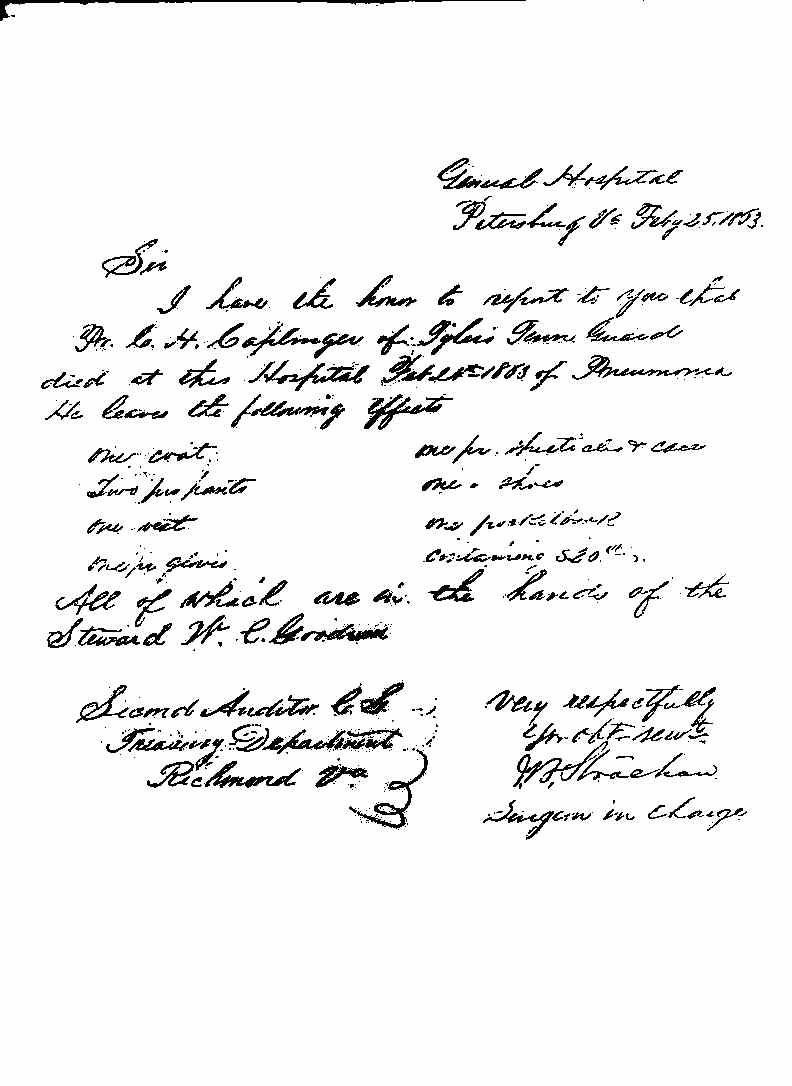 General Hospital
Petersburg Va Feby 25. 1863.
Sir
I have the honor to report to you that
Pr. C. H. Caplinger of Tylers Tenn. Guard
died at this Hospital 1863 of Pneumonia
He leaves the following effects
one coat.
one pr. specticals & case
Two prs pants
one " shoes
one vest
one pocketbook
one pr gloves
containing $20.
All of which are in the hands of the
Steward W. C. Goodwin
Second Auditor C. S.
Treasury Department
Richmond Va
Very respectfully
Yr obt servt
J. B. Strachan
Surgeon in Charge